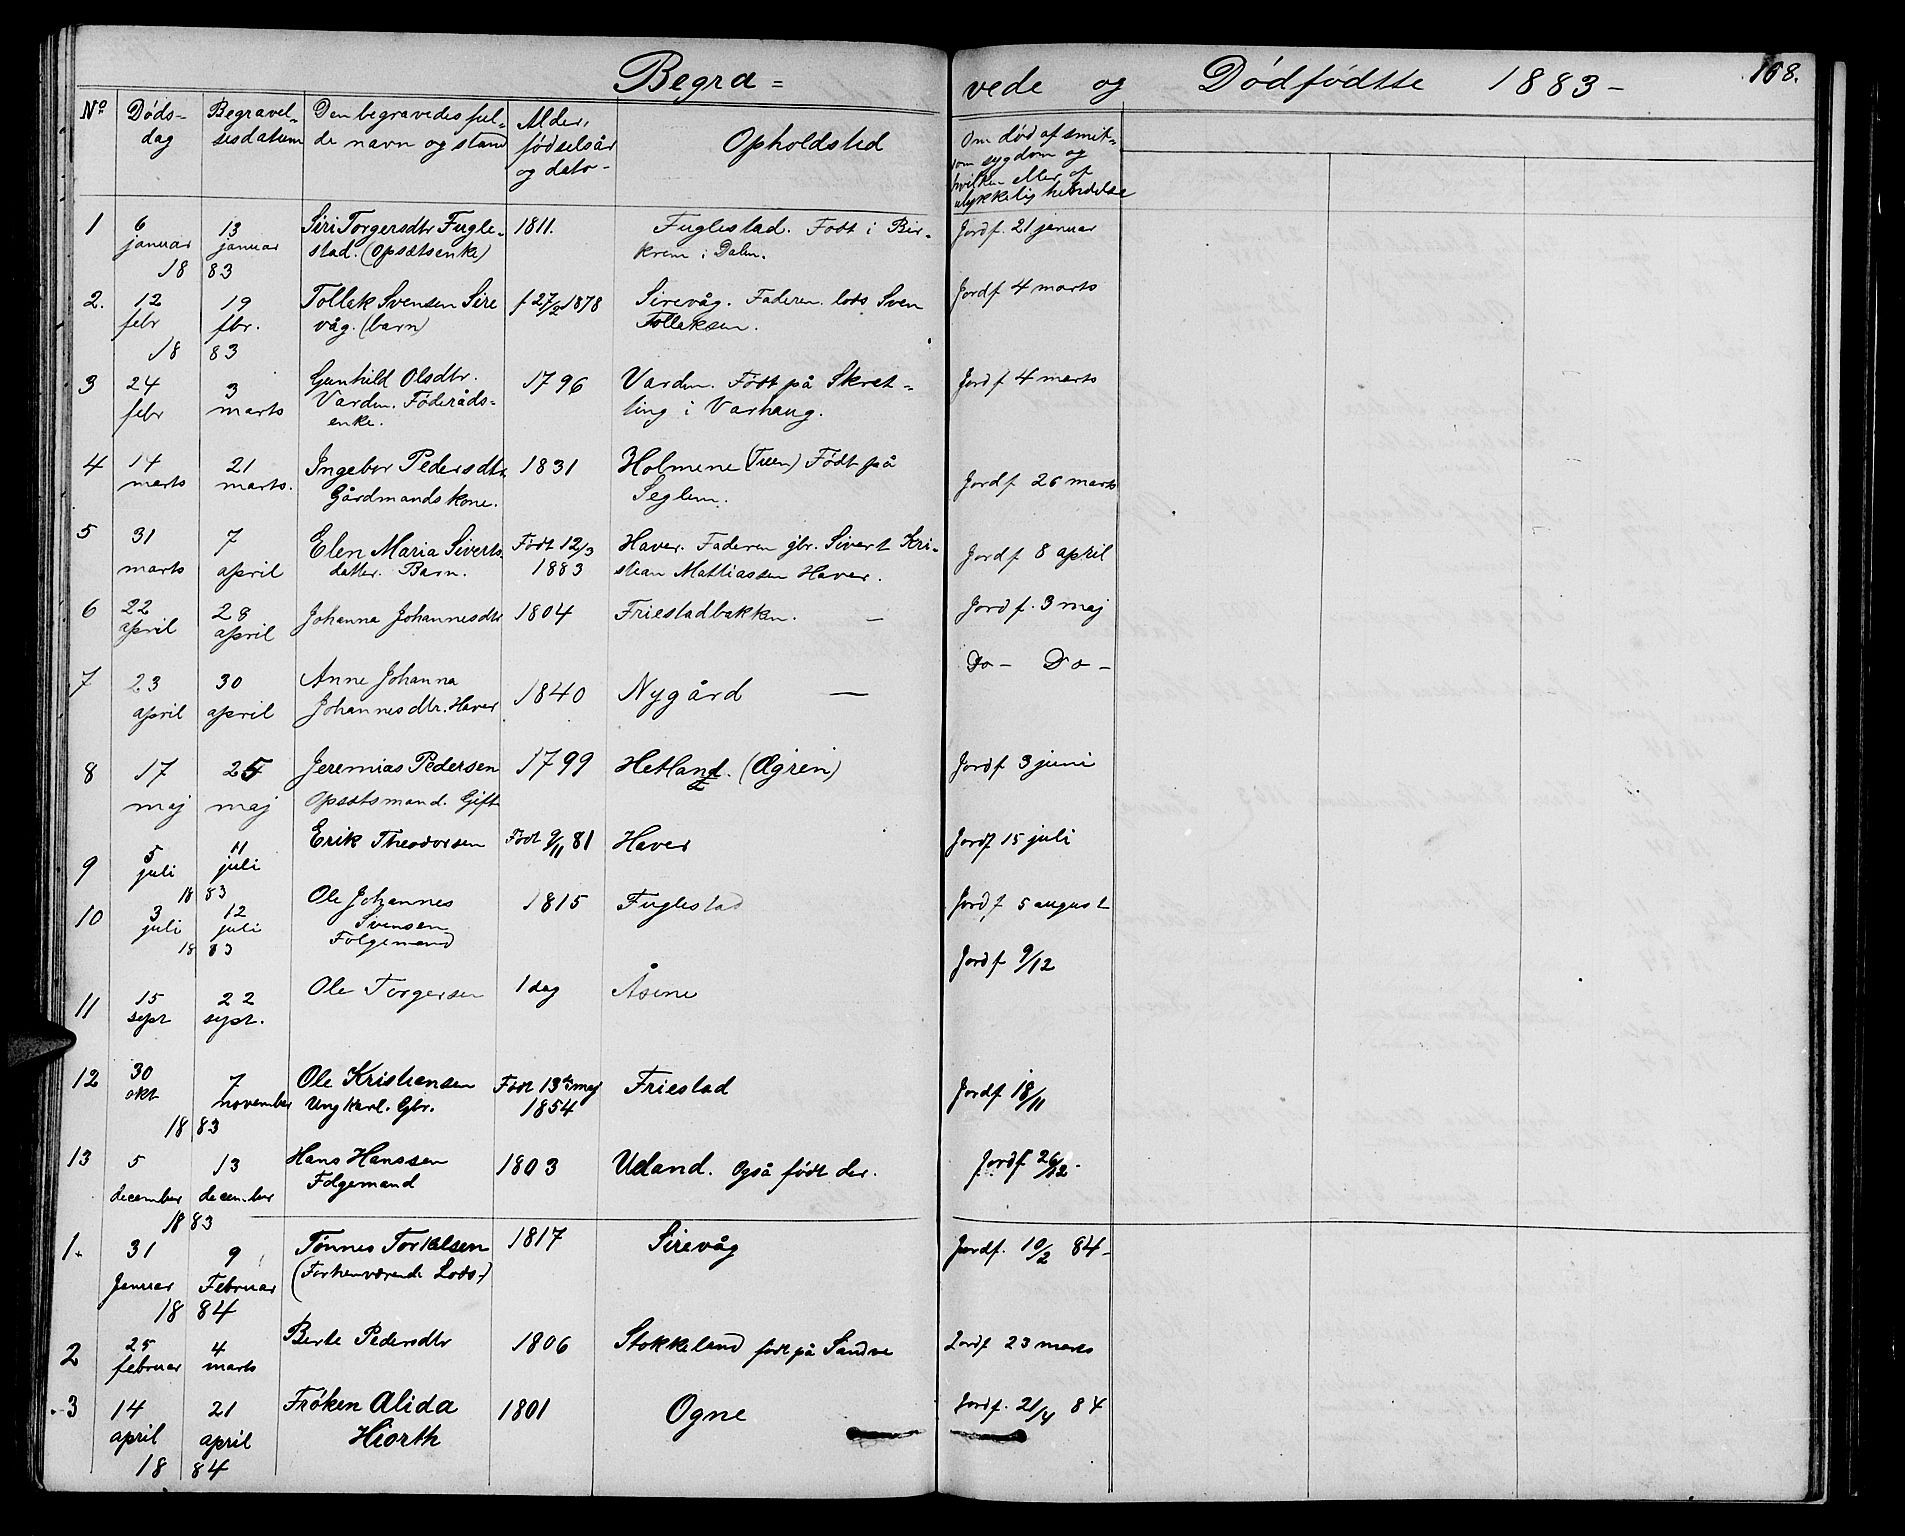 Begra= vede og Dødfødtte 1883-
168.
No Døds- dag Begravel- sesdatum Den begravedes ful- de navn og stand Alder, fødselsår og dato- Opholdsted Om død af smit- som sygdom og hvilken eller af ulykkelig hændelse
1 6 januar 13 januar Siri Torgersdtr Fugle- 1811. Fuglestad. Født i Bir- Jordf. 21 januar
stad. (Opsætsenke) krem i Dalen.
18 83
2. 12 febr 19 fbr. Tollak Svensen Sire f 27/2 1878 Sirevåg. Faderen lods Sven Jordf 4 marts
våg. (barn) Tollaksen.
18 83
3 24 febr 3 marts Gunhild Olsdtr. 1796 Varden. Født på Skret- Jordf 4 marts
Varden. Føderåds- ling i Varhaug.
enke.
4 14 marts 21 marts. Ingebor Pedersdtr 1831 Holmene (Tuen) Født på Jordf 26 marts
Gårdmandskone. Seglem.
5 31 marts 7 april Elen Maria Siverts Født 12/3 Haver. Faderen gbr. Sivert Kri- Jordf 8 april
datter. Barn. 1883 stian Mattiassen Haver.
6 22 april 28 april Johanna Johannesdtr 1804 Friestadbakken. — Jordf. 3 maj
7 23 april 30 april Anne Johanna 1840 Nygård — Do- Do-
Johannesdtr. Haver
8 17 maj 25 maj Jeremias Pedersen 1799 Hetland. (Ögrein) Jordf 3 juni
Opsætsmand. Gift
9 5 juli 11 juli Erik Theodorsen Født 9/11 81 Haver Jordf 15 juli
18 83
10 3 juli 12 juli Ole Johannes 1815 Fuglestad Jordf 5 august
Svensen
Folgemand
18 83
11 15 sept 22 sept. Ole Torgersen 1 dag Åsene Jordf 9/12
12 30 okt 7 november Ole Kristiansen Født 13de maj Friestad Jordf 18/11
Ungkarl. Gbr. 1854
18 83
13 5 december 13 december Hans Hanssen 1803 Ueland. Også født der. Jordf 26/12-
Folgemand
18 83
1. 31 Januar 9 Februar Tønnes Torkelsen 1817 Sirevåg Jordf. 10/2 84-
(Forhenværende Lods-)
18 84
2 25 februar 4 marts Berte Pedersdtr 1806 Stokkeland født på Sandve Jordf 23 marts
3 14 april 21 april Frøken Alida 1801 Ogne Jordf. 21/4 84
Hiorth
18 84